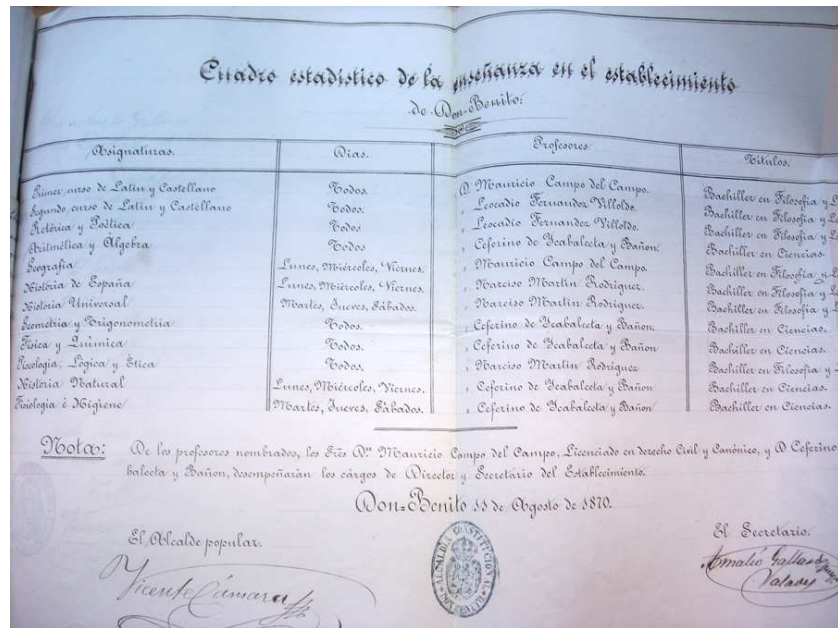 Cuadro estadístico de la enseñanza en el establecimiento
de Don-Benito:
Asignaturas. Dias. Profesores Títulos.
Primer curso de Latin y Castellano Todos. D. Mauricio Campo del Campo. Bachiller en Filosofia y
Segundo curso de Latin y Castellano Todos. " Leocadio Fernandez Villoldo. Bachiller en Filosofia y
Retórica y Poética Todos. " Leocadio Fernandez Villoldo. Bachiller en Filosofia y
Aritmética y Álgebra Todos " Ceferino de Ycabalceta y Bañon. Bachiller en Ciencias.
Geografia Lunes, Miércoles, Viernes. " Mauricio Campo del Campo. Bachiller en Filosofia y
História de España Lunes, Miércoles, Viernes. " Narciso Martin Rodriguez. Bachiller en Filosofia y
História Universal Martes, Jueves, Sábados. " Narciso Martin Rodriguez. Bachiller en Filosofia y
Geometria y Trigonometria Todos. " Ceferino de Ycabalceta y Bañon. Bachiller en Ciencias.
Física y Química Todos. " Ceferino de Ycabalceta y Bañon Bachiller en Ciencias.
Lógica y Ética Todos. " Narciso Martin Rodriguez Bachiller en Filosofia y
História Natural Lunes, Miércoles, Viernes. " Ceferino de Ycabalceta y Bañon Bachiller en Ciencias.
Fisiologia é Higiene Martes, Jueves, Sábados. " Ceferino de Ycabalceta y Bañon Bachiller en Ciencias.
Nota: De los profesores nombrados, los Srẽs Dn. Mauricio Campo del Campo, Licenciado en derecho Civil y Canónico, y D Ceferino
balceta y Bañon, desempeñarán los cárgos de Director y Secretario del Establecimiento.
Don-Benito 11 de Agosto de 1870.
El Alcalde popular. El Secretario.
Vicente Cámara
ALCALDIA CONSTITUCIONAL